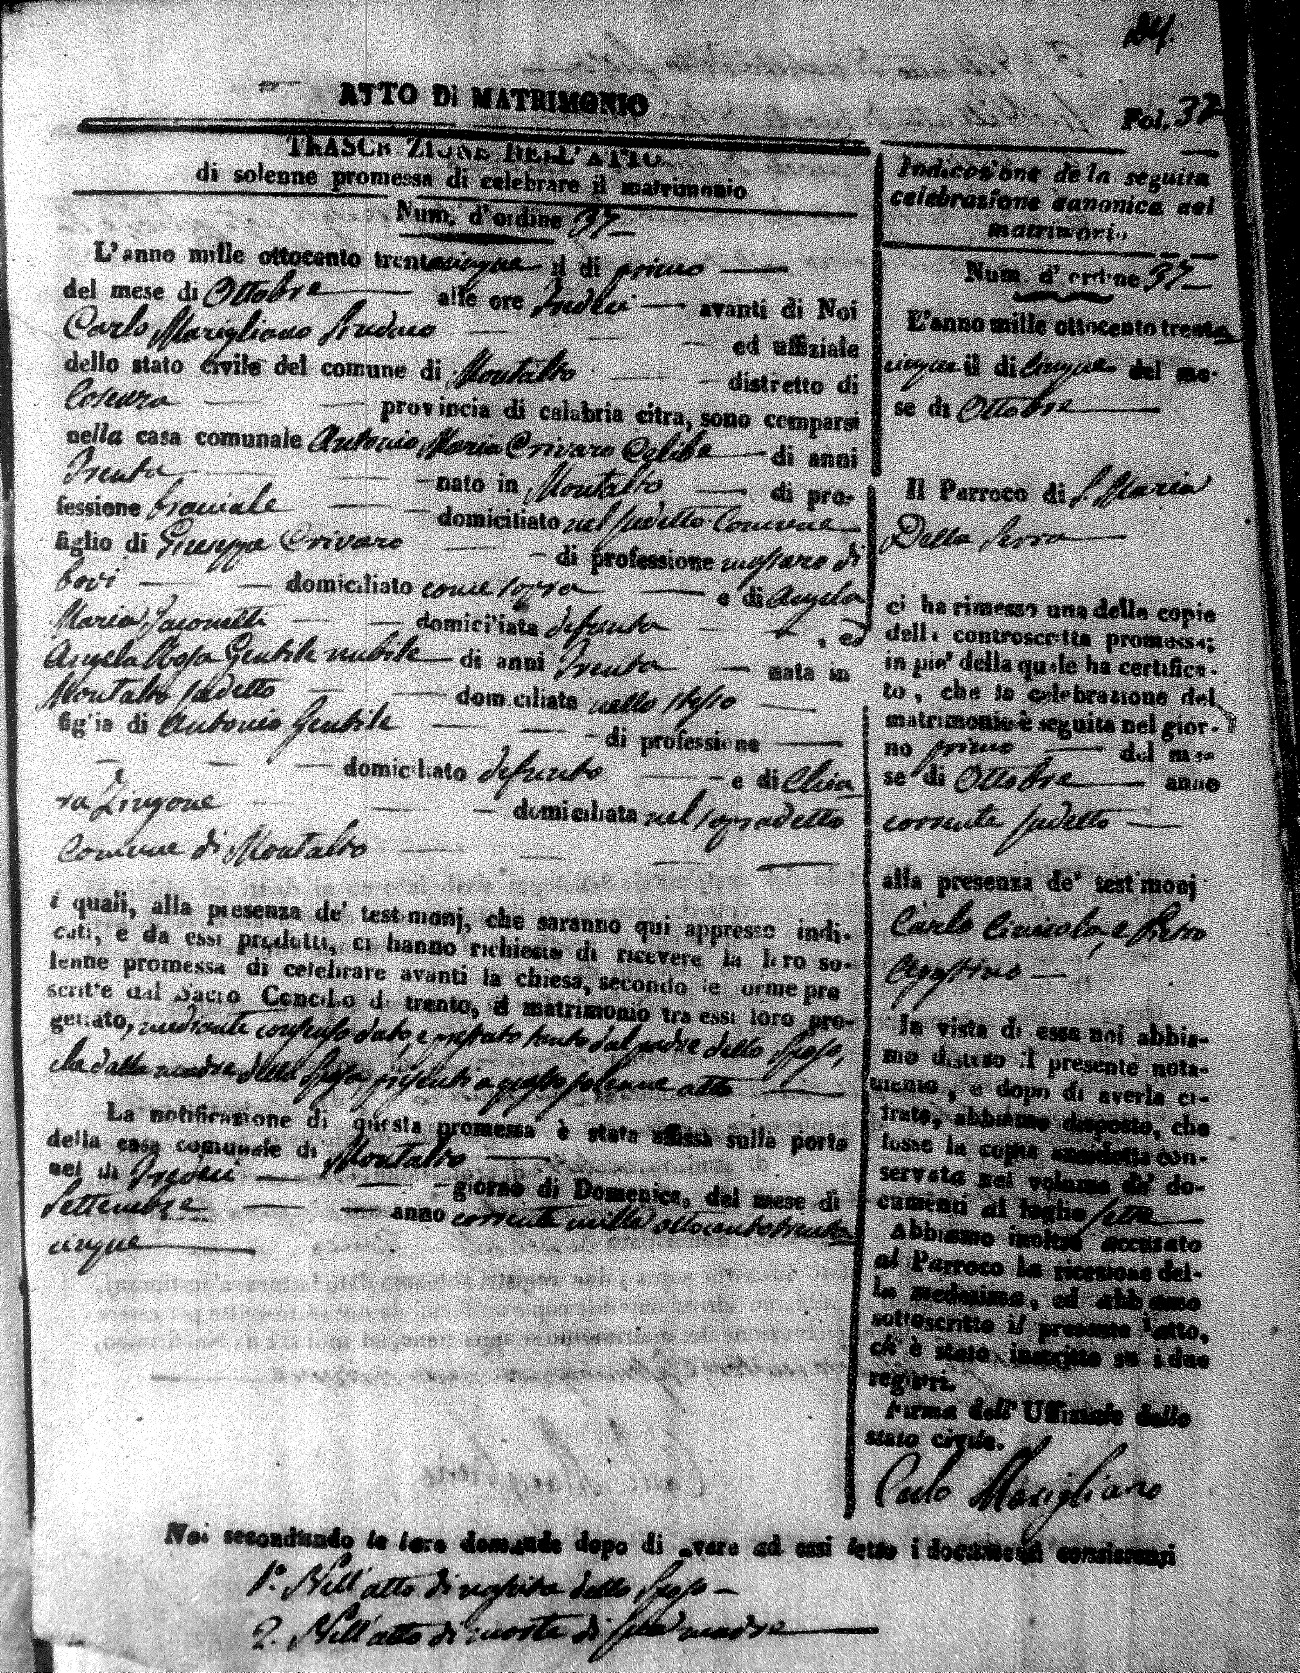 ATTO Di MATRIMONIO
Fol. 37
TRASCRIZIONE DELL'ATTO
di solenne promessa di celebrare il matrimonio
Num. d'ordine 37
L'anno mille ottocento trentacinque il di primo
del mese di Ottobre alle ore tredici avanti di Noi
Carlo Marigliano Sindaco ed uffiziale
dello stato civile del comune di Montalto distretto di
Cosenza provincia di calabria citra, sono comparsi
nella casa comunale Antonio Maria Crivaro Celibe di anni
Trenta nato in Montalto di pro-
fessione bracciale domiciliato nel sudetto Comune
figlio di Giuseppe Crivaro di professione massaro di
bovi domiciliato come sopra e di Angela
Maria Iaconetti domiciliata defunta, ed
Angela Rosa Gentile nubile di anni Trenta nata in
Montalto sudetto domiciliata nello stesso
figlia di Antonio Gentile di professione
domiciliato defunto e di Chia
ra Zingone domiciliata nel sopradetto
Comune di Montalto
i quali, alla presenza de' testimonj, che saranno qui appresso indi-
cati, e da essi prodotti, ci hanno richiesto di ricevere la loro so-
lenne promessa di celebrare avanti la chiesa, secondo le forme pre
scritte dal Sacro Concilio di trento, il matrimonio tra essi loro pro-
gettato, mediante consenso dato, e prestato tanto dal padre dello Sposo,
che dalla madre della Sposa presenti a questo solenne atto
La notificazione di questa promessa è stata affissa sulla porta
della casa comunale di Montalto
nel di tredici giorno di Domenica, del mese di
Settembre anno corrente mille ottocentotrenta
cinque
Indicazione de la seguita
celebrazione canonica del
matrimonio
Num. d'ordine 37
L'anno mille ottocento trenta
cinque il di cinque del me-
se di Ottobre
Il Parroco di S. Maria
Della Serra
ci ha rimesso una delle copie
della controscritta promessa;
in pie' della quale ha certifica-
to, che la celebrazione del
matrimonio è seguita nel gior-
no primo del me-
se di Ottobre anno
corrente sudetto
alla presenza de' testimonj
Carlo e Pietro
Agostino
In vista di essa noi abbia-
mo disteso il presente nota-
mento, e dopo di averla ci-
frata, abbiamo disposto, che
fosse la copia anzidetta con-
servata nel volume de' do-
cumenti al foglio sette
Abbiamo inoltre accusato
al Parroco la ricezione del-
la medesima, ed abbiamo
sottoscritto il presente atto,
ch' è stato inscritto su i due
registri.
Firma dell' Uffiziale dello
stato civile.
Carlo Marigliano
Noi secondando le loro domande dopo di avere ad essi letto i documenti consistenti
1.° Nell'atto di nascita dello Sposo
2. Nell'atto di morte di sua madre